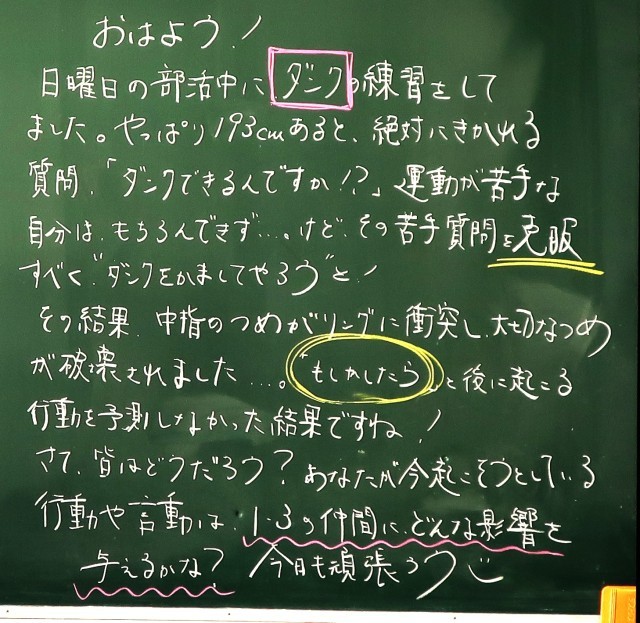 おはよう！
日曜日の部活中にダンクの練習をして
ました。やっぱり193cmあると、絶対にきかれる
質問、「ダンクできるんですか！？」運動が苦手な
自分は、もちろんできず…。けど、その苦手質問を克服
すべく“ダンクをかましてやろう”と！
その結果、中指のつめがリングに衝突し、大切なつめ
が破壊されました…。“もしかしたら”と後に起こる
行動を予測しなかった結果ですね！
さて、皆はどうだろう？あなたが今起こそうとしている
行動や言動は、1-3の仲間に、どんな影響を
与えるかな？今日も頑張ろう